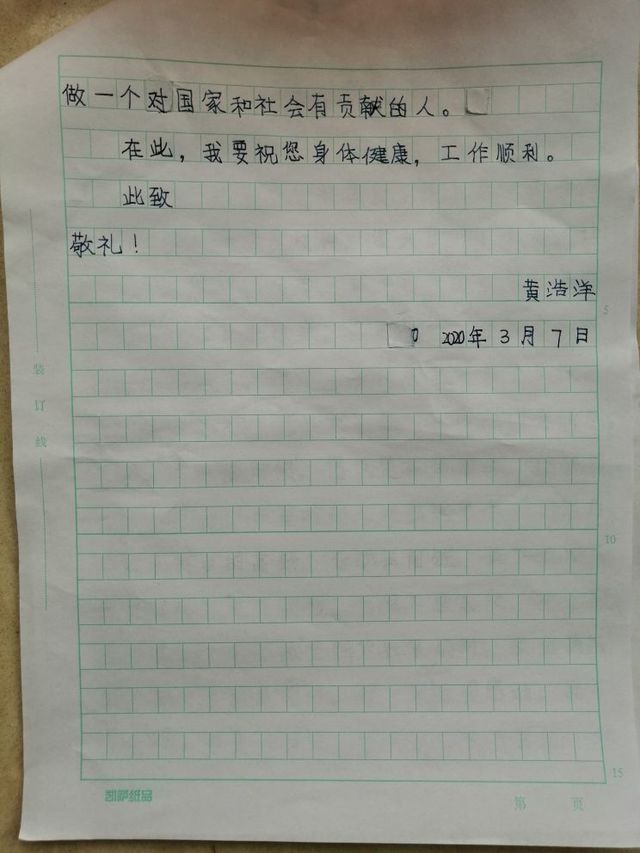 做一个对国家和社会有贡献的人。
在此，我要祝您身体健康，工作顺利。
此致
敬礼！
黄浩洋
5
2020年3月7日
装订线
10
15
凯萨纸品
第 页